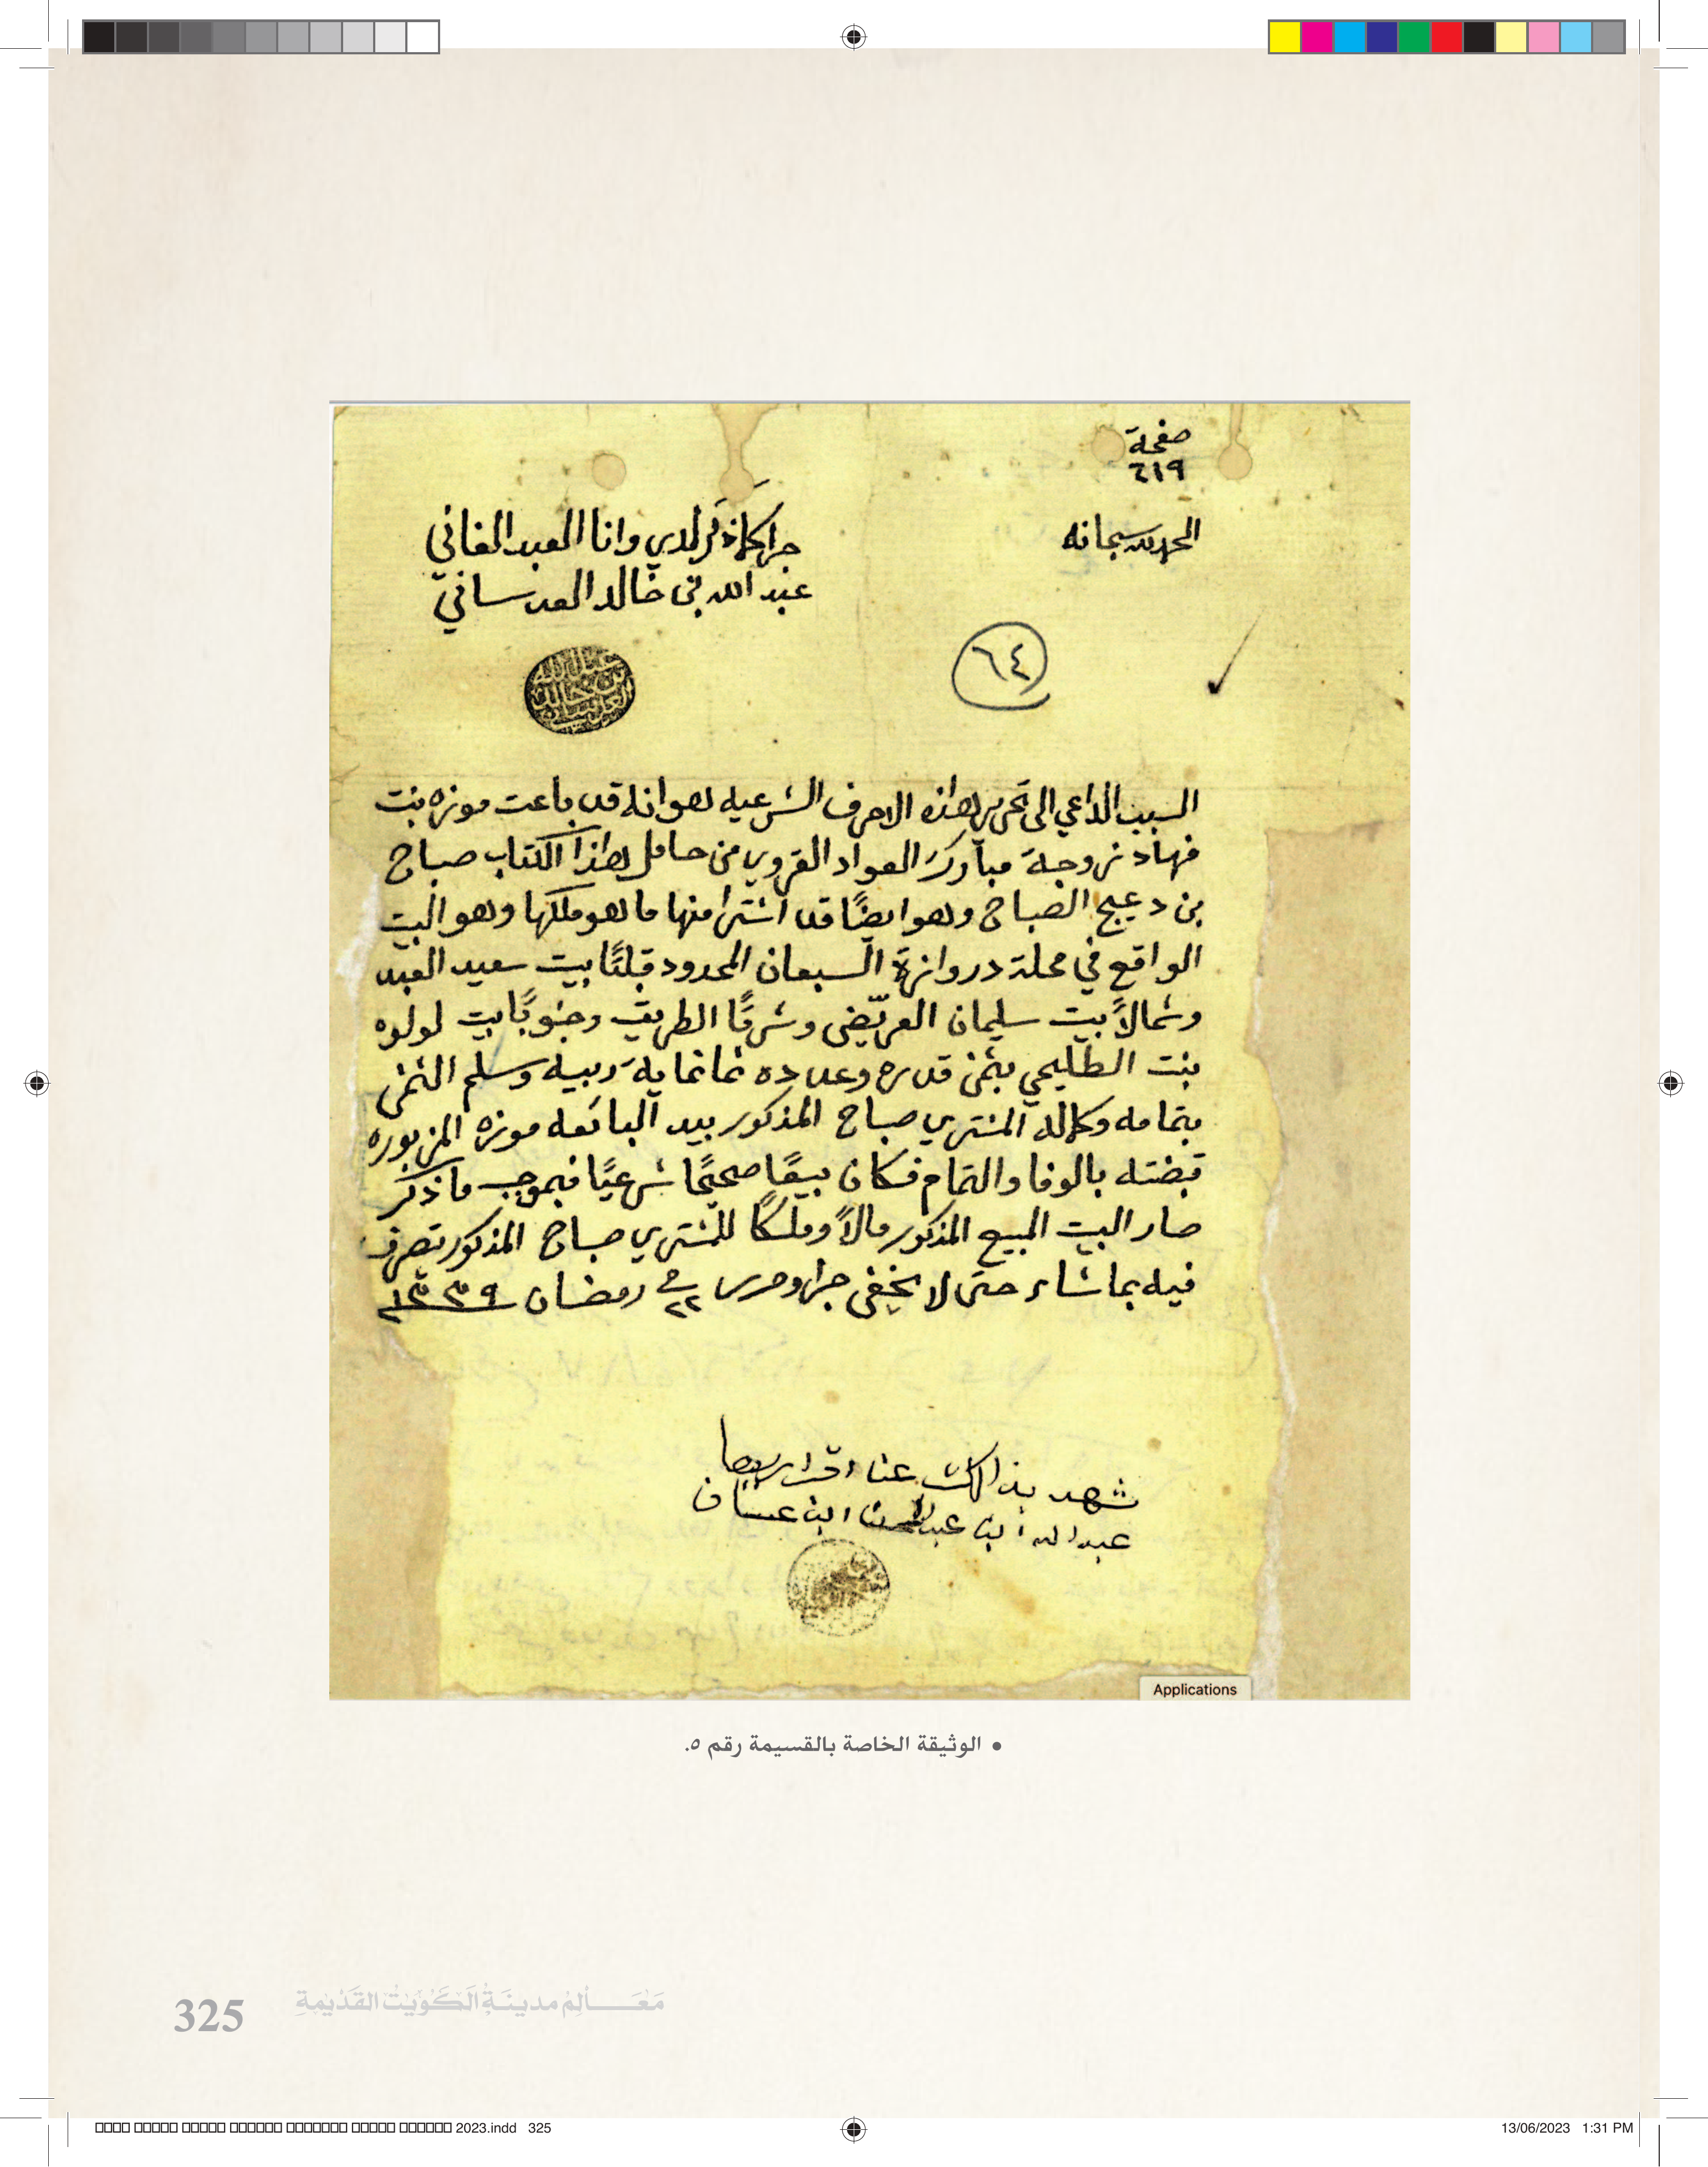 صفحة
٦١٩
الحمد لله سبحانه
جرا كما ذكر لدي وانا العبد الفاني
عبد الله بن خالد العدساني
عبد الله
بن خالد
العدساني
٦٤
السبب الداعي الى تحرير هذه الاحرف الشرعيه هو انه قد باعت موزه بنت
فهاد زوجة مبارك العواد القروي من حامل هذا الكتاب صباح
بن دعيج الصباح وهو ايضًا قد اشترا منها ما هو ملكها وهو البيت
الواقع في محلة دروازة السبعان المحدود قبلتًا بيت سعيد العبد
وشمالاً بيت سليمان العريّضي وشرقًا الطريق وجنوبًا بيت لولوه
بنت الطليحي بثمن قدره وعدده ثمانمايه ربيه وسلم الثمن
بتمامه وكماله المشتري صباح المذكور بيد البائعه موزه المزبوره
قبضته بالوفا والتمام فكان بيعًا صحيحًا شرعيًا فبموجب ما ذكر
صار البيت المبيع المذكور مالاً وملكًا للمشتري صباح المذكور تصرف
فيه بما شاء حتى لا يخفى جرا وحرر في ٢٢ رمضان ١٣٣٩
شهد بذالك عنا اقرارهما
عبدالله ابن عبدالمحسن ابن عساف
Applications
• الوثيقة الخاصة بالقسيمة رقم ٥.
325 مَعَـــالِمُ مدينَـةِ الكُوَيْتِ القَدْيمةِ
2023.indd 325
13/06/2023 1:31 PM